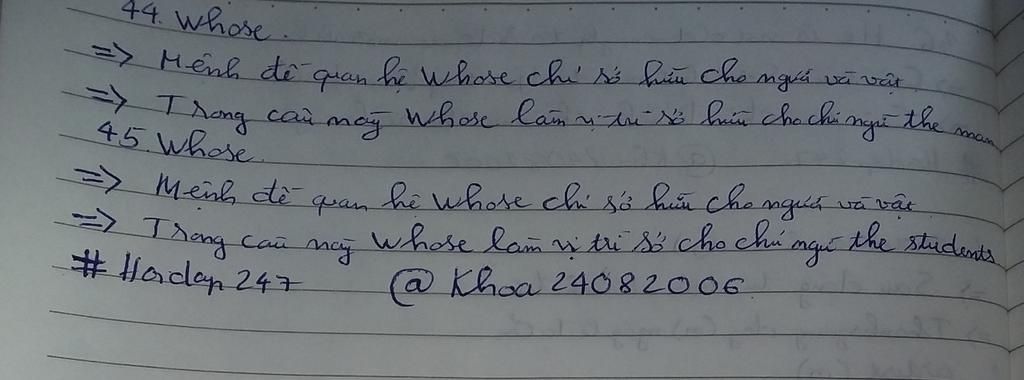 44. Whose.
=> Mệnh đề quan hệ Whose chỉ sở hữu cho người và vật
=> Trong câu này Whose làm vị trí sở hữu cho chủ ngữ the man
45. Whose.
=> Mệnh đề quan hệ Whose chỉ sở hữu cho người và vật
=> Trong câu này Whose làm vị trí sở cho chủ ngữ the students
# Hoidap 247 @ Khoa 24082006